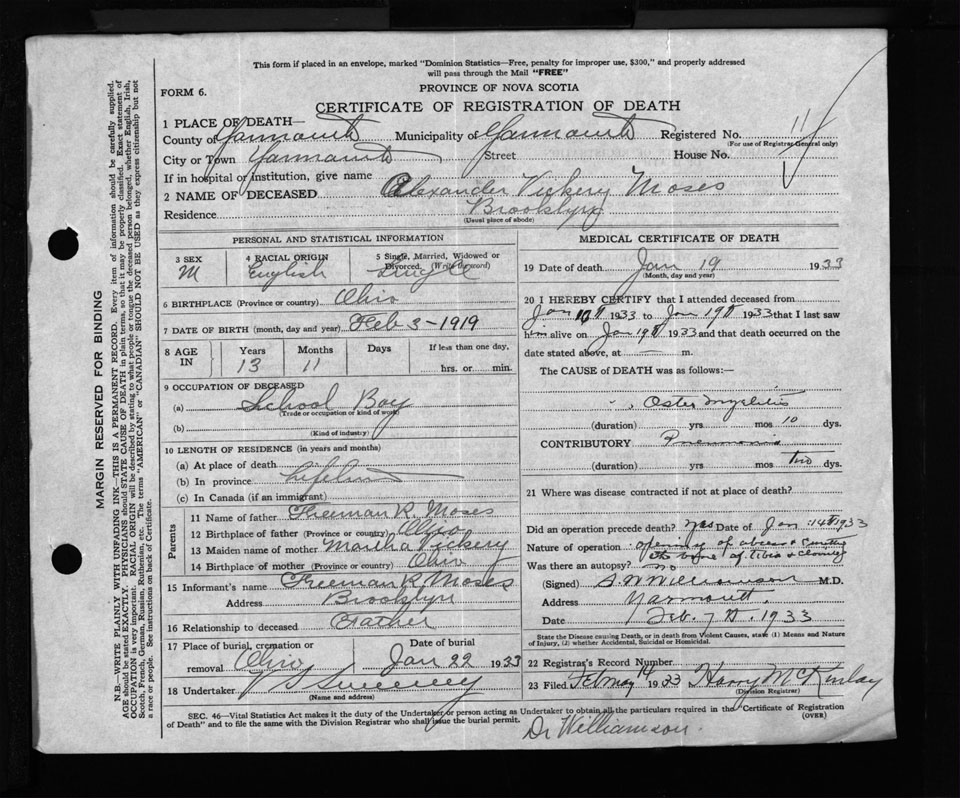 This form if placed in an envelope, marked "Dominion Statistics—Free, penalty for improper use, $300," and properly addressed
will pass through the Mail "FREE"
FORM 6.
PROVINCE OF NOVA SCOTIA
CERTIFICATE OF REGISTRATION OF DEATH
1 PLACE OF DEATH—
County of Yarmouth Municipality of Yarmouth Registered No.
(For use of Registrar General only)
City or Town Yarmouth Street House No.
If in hospital or Institution, give name
2 NAME OF DECEASED Alexander Vickery Moses
Residence Brooklyn
(Usual place of abode)
PERSONAL AND STATISTICAL INFORMATION
3 SEX 4 RACIAL ORIGIN 5 Single, Married, Widowed or
Divorced. (Write the word)
M English Single
6 BIRTHPLACE (Province or country) Ohio
7 DATE OF BIRTH (month, day and year) Feb 3-1919
8 AGE IN Years Months Days If less than one day,
13 11 hrs. or min.
9 OCCUPATION OF DECEASED
(a) School Boy
(Trade or occupation or kind of work)
(b)
(Kind of industry)
10 LENGTH OF RESIDENCE (in years and months)
(a) At place of death
(b) In province Lifetime
(c) In Canada (if an immigrant)
Parents
11 Name of father Freeman R. Moses
12 Birthplace of father (Province or country) Ohio
13 Maiden name of mother Martha Vickery
14 Birthplace of mother (Province or country) Ohio
15 Informant's name Freeman R. Moses
Address Brooklyn
16 Relationship to deceased Father
17 Place of burial, cremation or Date of burial
removal Ohio Jan 22 1933
18 Undertaker V S Sweeney
(Name and address)
MEDICAL CERTIFICATE OF DEATH
19 Date of death Jan 19 1933
(Month, day and year)
20 I HEREBY CERTIFY that I attended deceased from
Jan 10th 1933 to Jan 19th 1933 that I last saw
him alive on Jan 19th 1933 and that death occurred on the
date stated above, at — m.
The CAUSE of DEATH was as follows:—
Osteo Myelitis
(duration) yrs mos 10 dys.
CONTRIBUTORY Pneumonia
(duration) yrs mos two dys.
21 Where was disease contracted if not at place of death?
Did an operation precede death? Yes Date of Jan 14th 1933
Nature of operation opening of abcess &
bone of tibia &
Was there an autopsy? No
(Signed) S.W. Williamson M.D.
Address Yarmouth
Date Feb. 7th. 1933
State the Disease causing Death, or in death from Violent Causes, state (1) Means and Nature
of Injury, (2) whether Accidental, Suicidal or Homicidal.
22 Registrar's Record Number
23 Filed 14 1933 Harry McKinlay
(Division Registrar)
SEC. 46—Vital Statistics Act makes it the duty of the Undertaker or person acting as Undertaker to obtain all the particulars required in the Certificate of Registration
of Death" and to file the same with the Division Registrar who shall issue the burial permit. (OVER)
Dr Williamson.
MARGIN RESERVED FOR BINDING
N.B.—WRITE PLAINLY WITH UNFADING INK—THIS IS A PERMANENT RECORD. Every item of information should be carefully supplied.
AGE should be stated EXACTLY. PHYSICIANS should STATE CAUSE OF DEATH in plain terms, so that it may be properly classified. Exact statement of
OCCUPATION is very important. RACIAL ORIGIN will be described by stating to what people or tongue the deceased person belonged, whether English, Irish,
Scotch, French, German, Russian, Ruthenian, etc. The terms "AMERICAN" or "CANADIAN" SHOULD NOT BE USED as they express citizenship but not
a race or people. See instructions on back of Certificate.